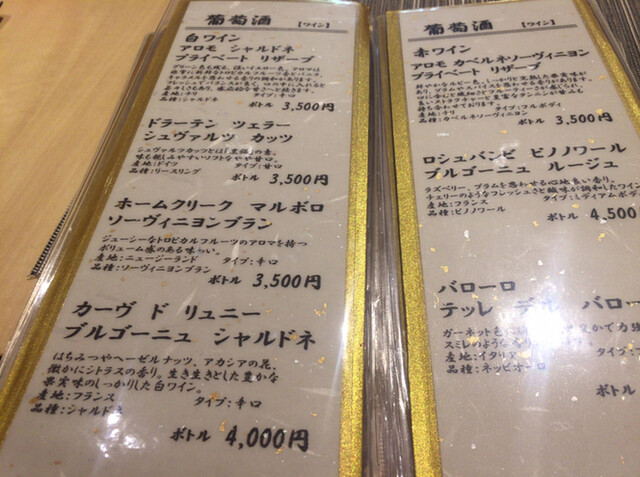 葡萄酒 【ワイン】
白ワイン
アロモ シャルドネ
プライベート リザーブ
産地:チリ タイプ:辛口
品種:シャルドネ
ボトル 3,500円
ドラーテン ツェラー
シュヴァルツ カッツ
シュヴァルツカッツとは「黒猫」の意。
味も親しみやすいソフトなやや甘口。
産地:ドイツ タイプ:甘口
品種:リースリング
ボトル 3,500円
ホームクリーク マルボロ
ソーヴィニヨンブラン
ジューシーなトロピカルフルーツのアロマを持つ
ボリューム感のある味わい。
産地:ニュージーランド タイプ:辛口
品種:ソーヴィニヨンブラン
ボトル 3,500円
カーヴ ド リュニー
ブルゴーニュ シャルドネ
はちみつやヘーゼルナッツ、アカシアの花、
微かにシトラスの香り。生き生きとした豊かな
果実味のしっかりした白ワイン。
産地:フランス タイプ:辛口
品種:シャルドネ
ボトル 4,000円
葡萄酒 【ワイン】
赤ワイン
アロモ カベルネソーヴィニヨン
プライベート リザーブ
産地:チリ タイプ:フルボディ
品種:カベルネソーヴィニヨン
ボトル 3,500円
ロシュバンビ ピノノワール
ブルゴーニュ ルージュ
ラズベリー、プラムを思わせる心地良い香り。
チェリーのようなフレッシュさと酸味が調和したワイン
産地:フランス タイプ:ミディアムボディ
品種:ピノノワール
ボトル 4,500
バローロ
テッレ デル バロー
ガーネット色 かで力強
スミレのような香り。
産地:イタリア タイ
品種:ネッビオーロ
ボト